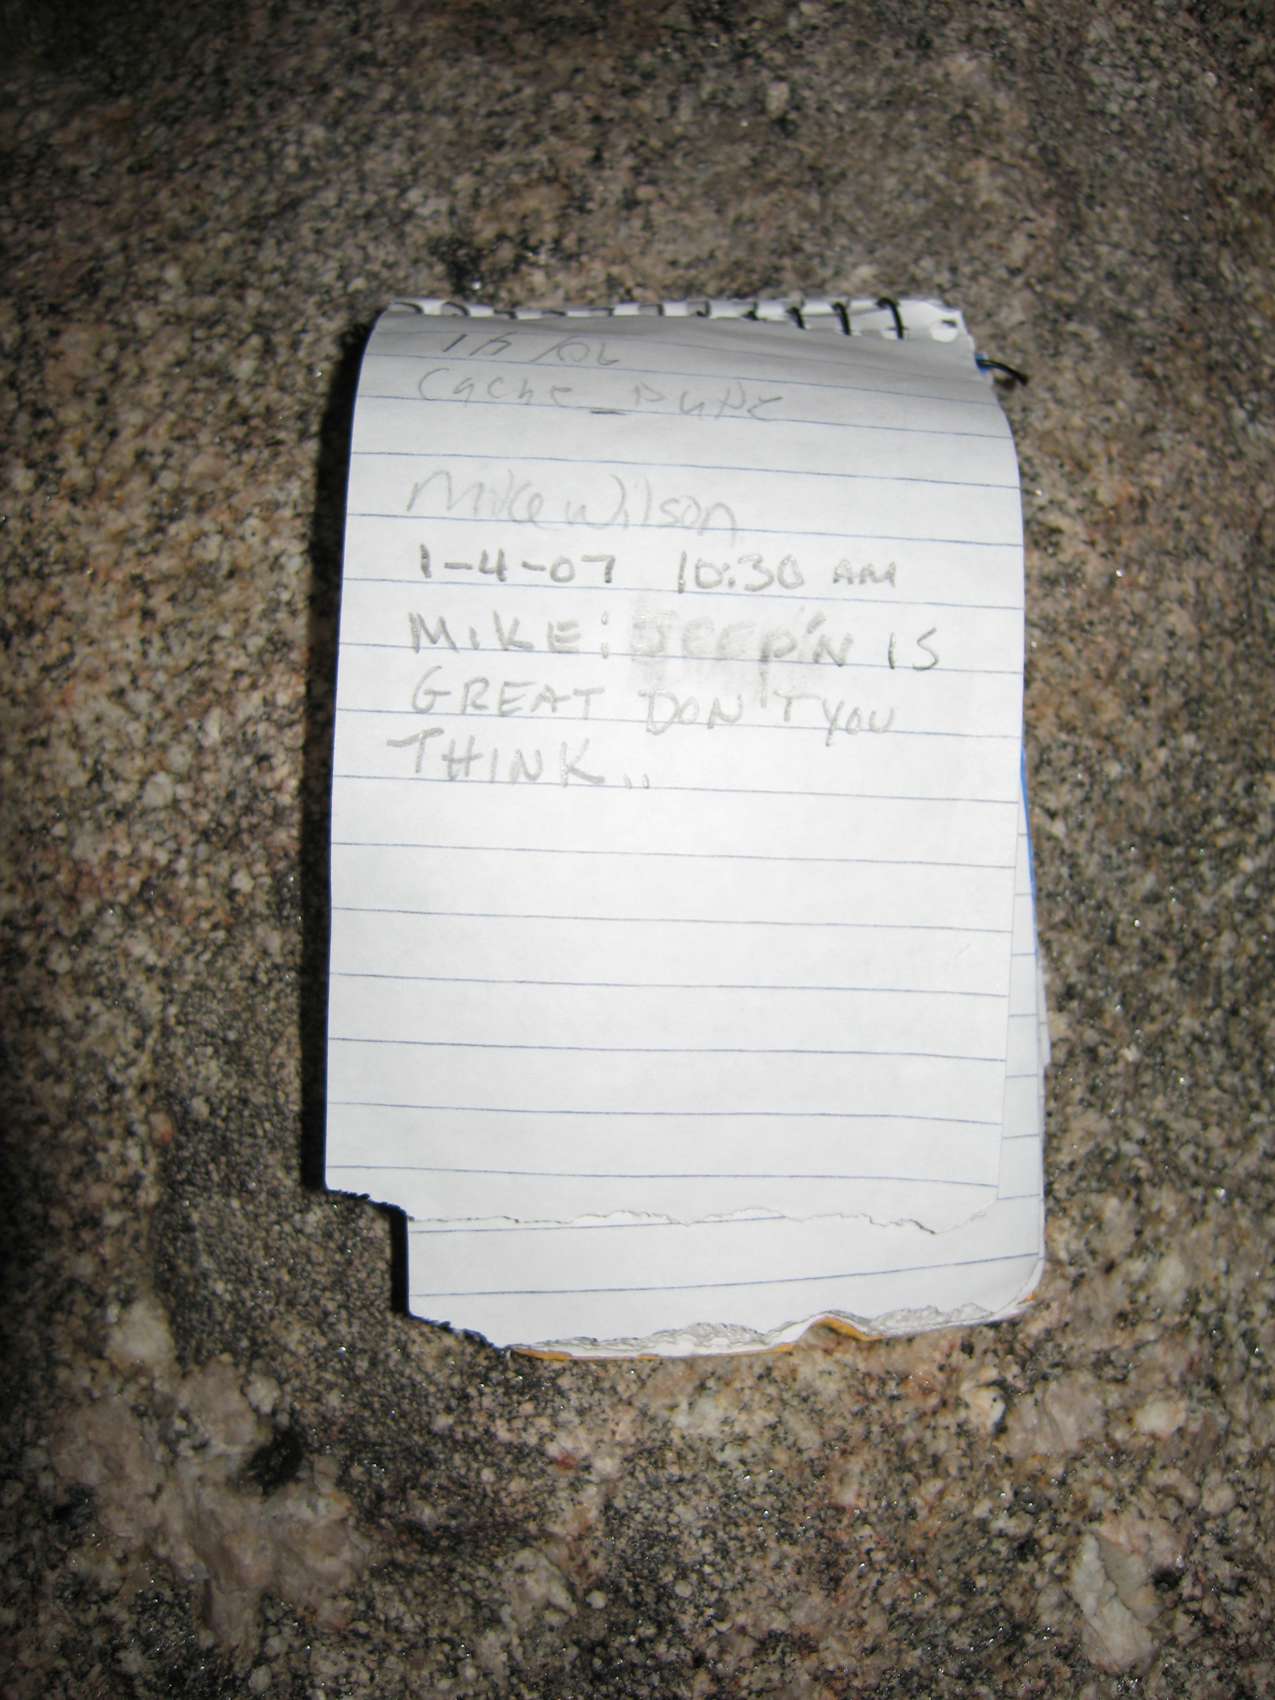 Cache_Dude
Mike Wilson
1-4-07 10:30 AM
MIKE: JEEP'N IS
GREAT DON'T YOU
THINK..